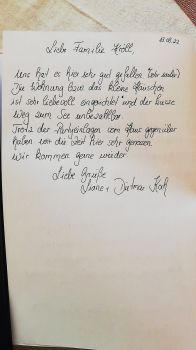 13.08.22
Liebe Familie Kröll,
Uns hat es hier sehr gut gefallen (sehr sauber)
Die Wohnung bzw das kleine Häuschen
ist sehr liebevoll eingerichtet und der kurze
Weg zum See unbezahlbar.
Trotz der vom Haus gegenüber
haben wir die Zeit hier sehr genossen
Wir kommen gerne wieder.
Liebe Grüße
Dietmar